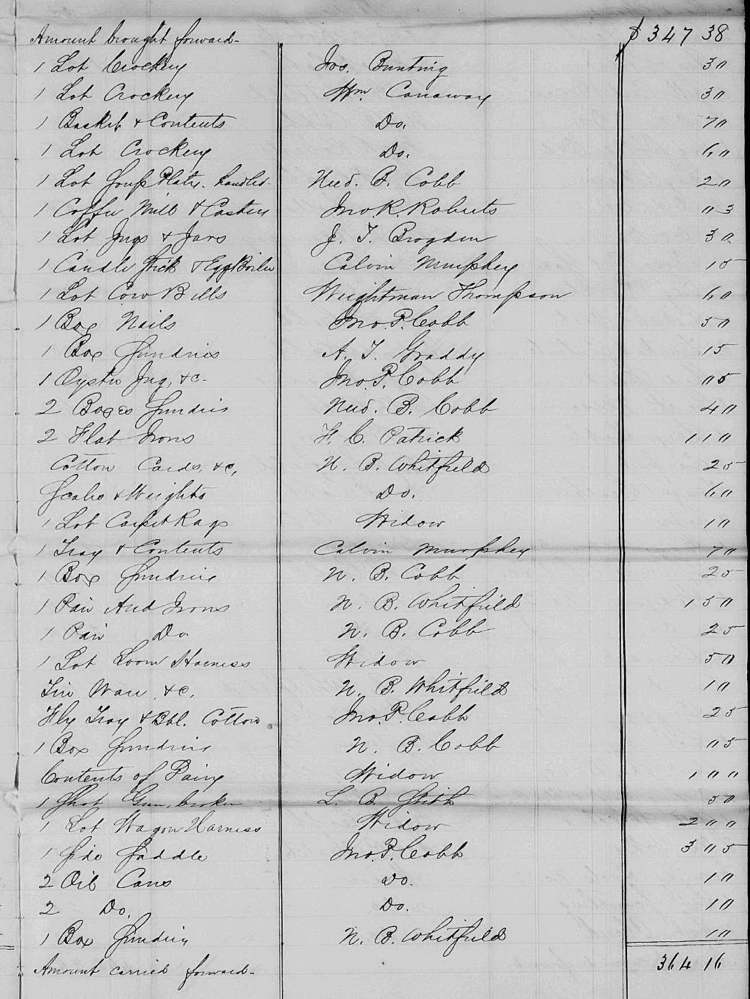 Amount brought forward- $347 38
1 Lot Crockery Jos. Bunting 30
1 Lot Crockery Wm. Canaway 30
1 Basket & Contents Do. 70
1 Lot Crockery Do. 60
1 Lot Soup Plates, handled- Need. B. Cobb 20
1 Coffee Mill & Casters Jno. R. Roberts 03
1 Lot Jugs & Jars J. T. Brogden 30
1 Candle Stick & Egg Boiler Calvin Murphey 15
1 Lot Cow Bells Weightman Thompson 60
1 Box Nails Jno. P. Cobb 50
1 Box Sundries A. T. Graddy 15
1 Oyster Jug, &c- Jno. P. Cobb 05
2 Boxes Sundries Need. B. Cobb 40
2 Flat Irons F. C. Patrick 1 10
Cotton Cards, &c, N. B. Whitfield 25
Scales & Weights Do. 60
1 Lot Carpet Rags Widow 10
1 Tray & Contents Calvin Murphey 70
1 Box Sundries N. B. Cobb 25
1 Pair And Irons N. B. Whitfield 1 50
1 Pair Do N. B. Cobb 25
1 Lot Loom Harness Widow 50
Tin Ware &c, N. B. Whitfield 10
Fly Tray & Bbl. Cotton Jno. P. Cobb 25
1 Box Sundries N. B. Cobb 05
Contents of Dairy Widow 1 00
1 Shot Gun, broken L. B. Stith 50
1 Lot Wagon Harness Widow 2 00
1 Side Saddle Jno. P. Cobb 3 05
2 Oil Cans Do. 10
2 Do. Do. 10
1 Box Sundries N. B. Whitfield 10
Amount carried forward- 364 16